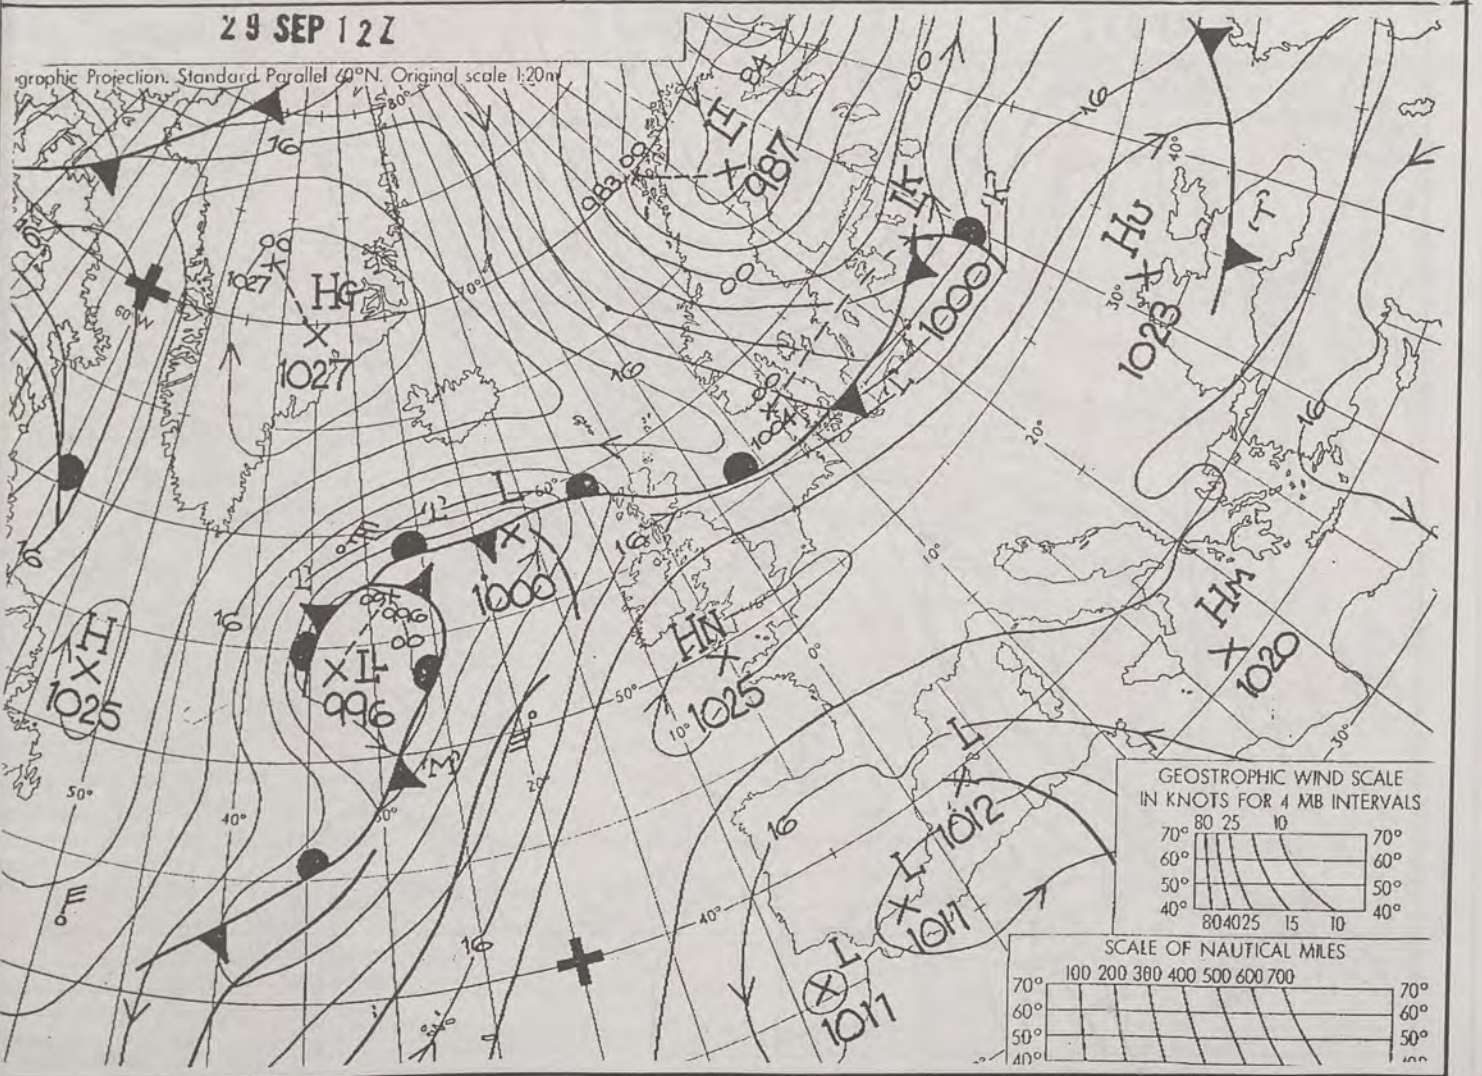 29 SEP 12Z
graphic Projection. Standard Parallel 60°N. Original scale 1:20m
80°
84
16
16
H
987
983
00
40°
Hu
1023
T
30°
1027
00
HG
1027
60°W
70°
00
1000
16
16
20°
1004
00
L
60°
12
16
10°
1000
16
996
00
L
996
H
1025
HN
1025
0°
50°
10°
HM
1020
30°
M
20°
50°
40°
30°
L
1012
16
L
1011
40°
16
L
1011
GEOSTROPHIC WIND SCALE
IN KNOTS FOR 4 MB INTERVALS
80 25 10
70° 70°
60° 60°
50° 50°
40° 40°
80 40 25 15 10
SCALE OF NAUTICAL MILES
100 200 300 400 500 600 700
70° 70°
60° 60°
50° 50°
40°